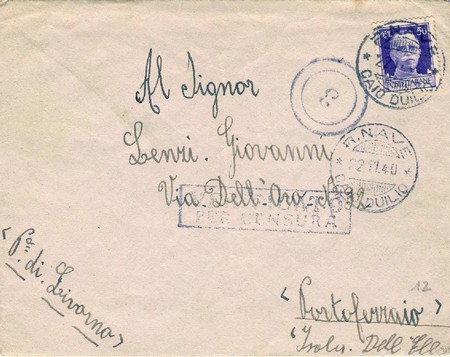 R. NAVE
CAIO DUILIO
50
Al Signor
Lenzi Giovanni
Via Dell'Oro N°
PER CENSURA
R. NAVE
22.11.40
CAIO DUILIO
(P.ª di Livorno)
12
(Portoferraio)
(Isola Dell'